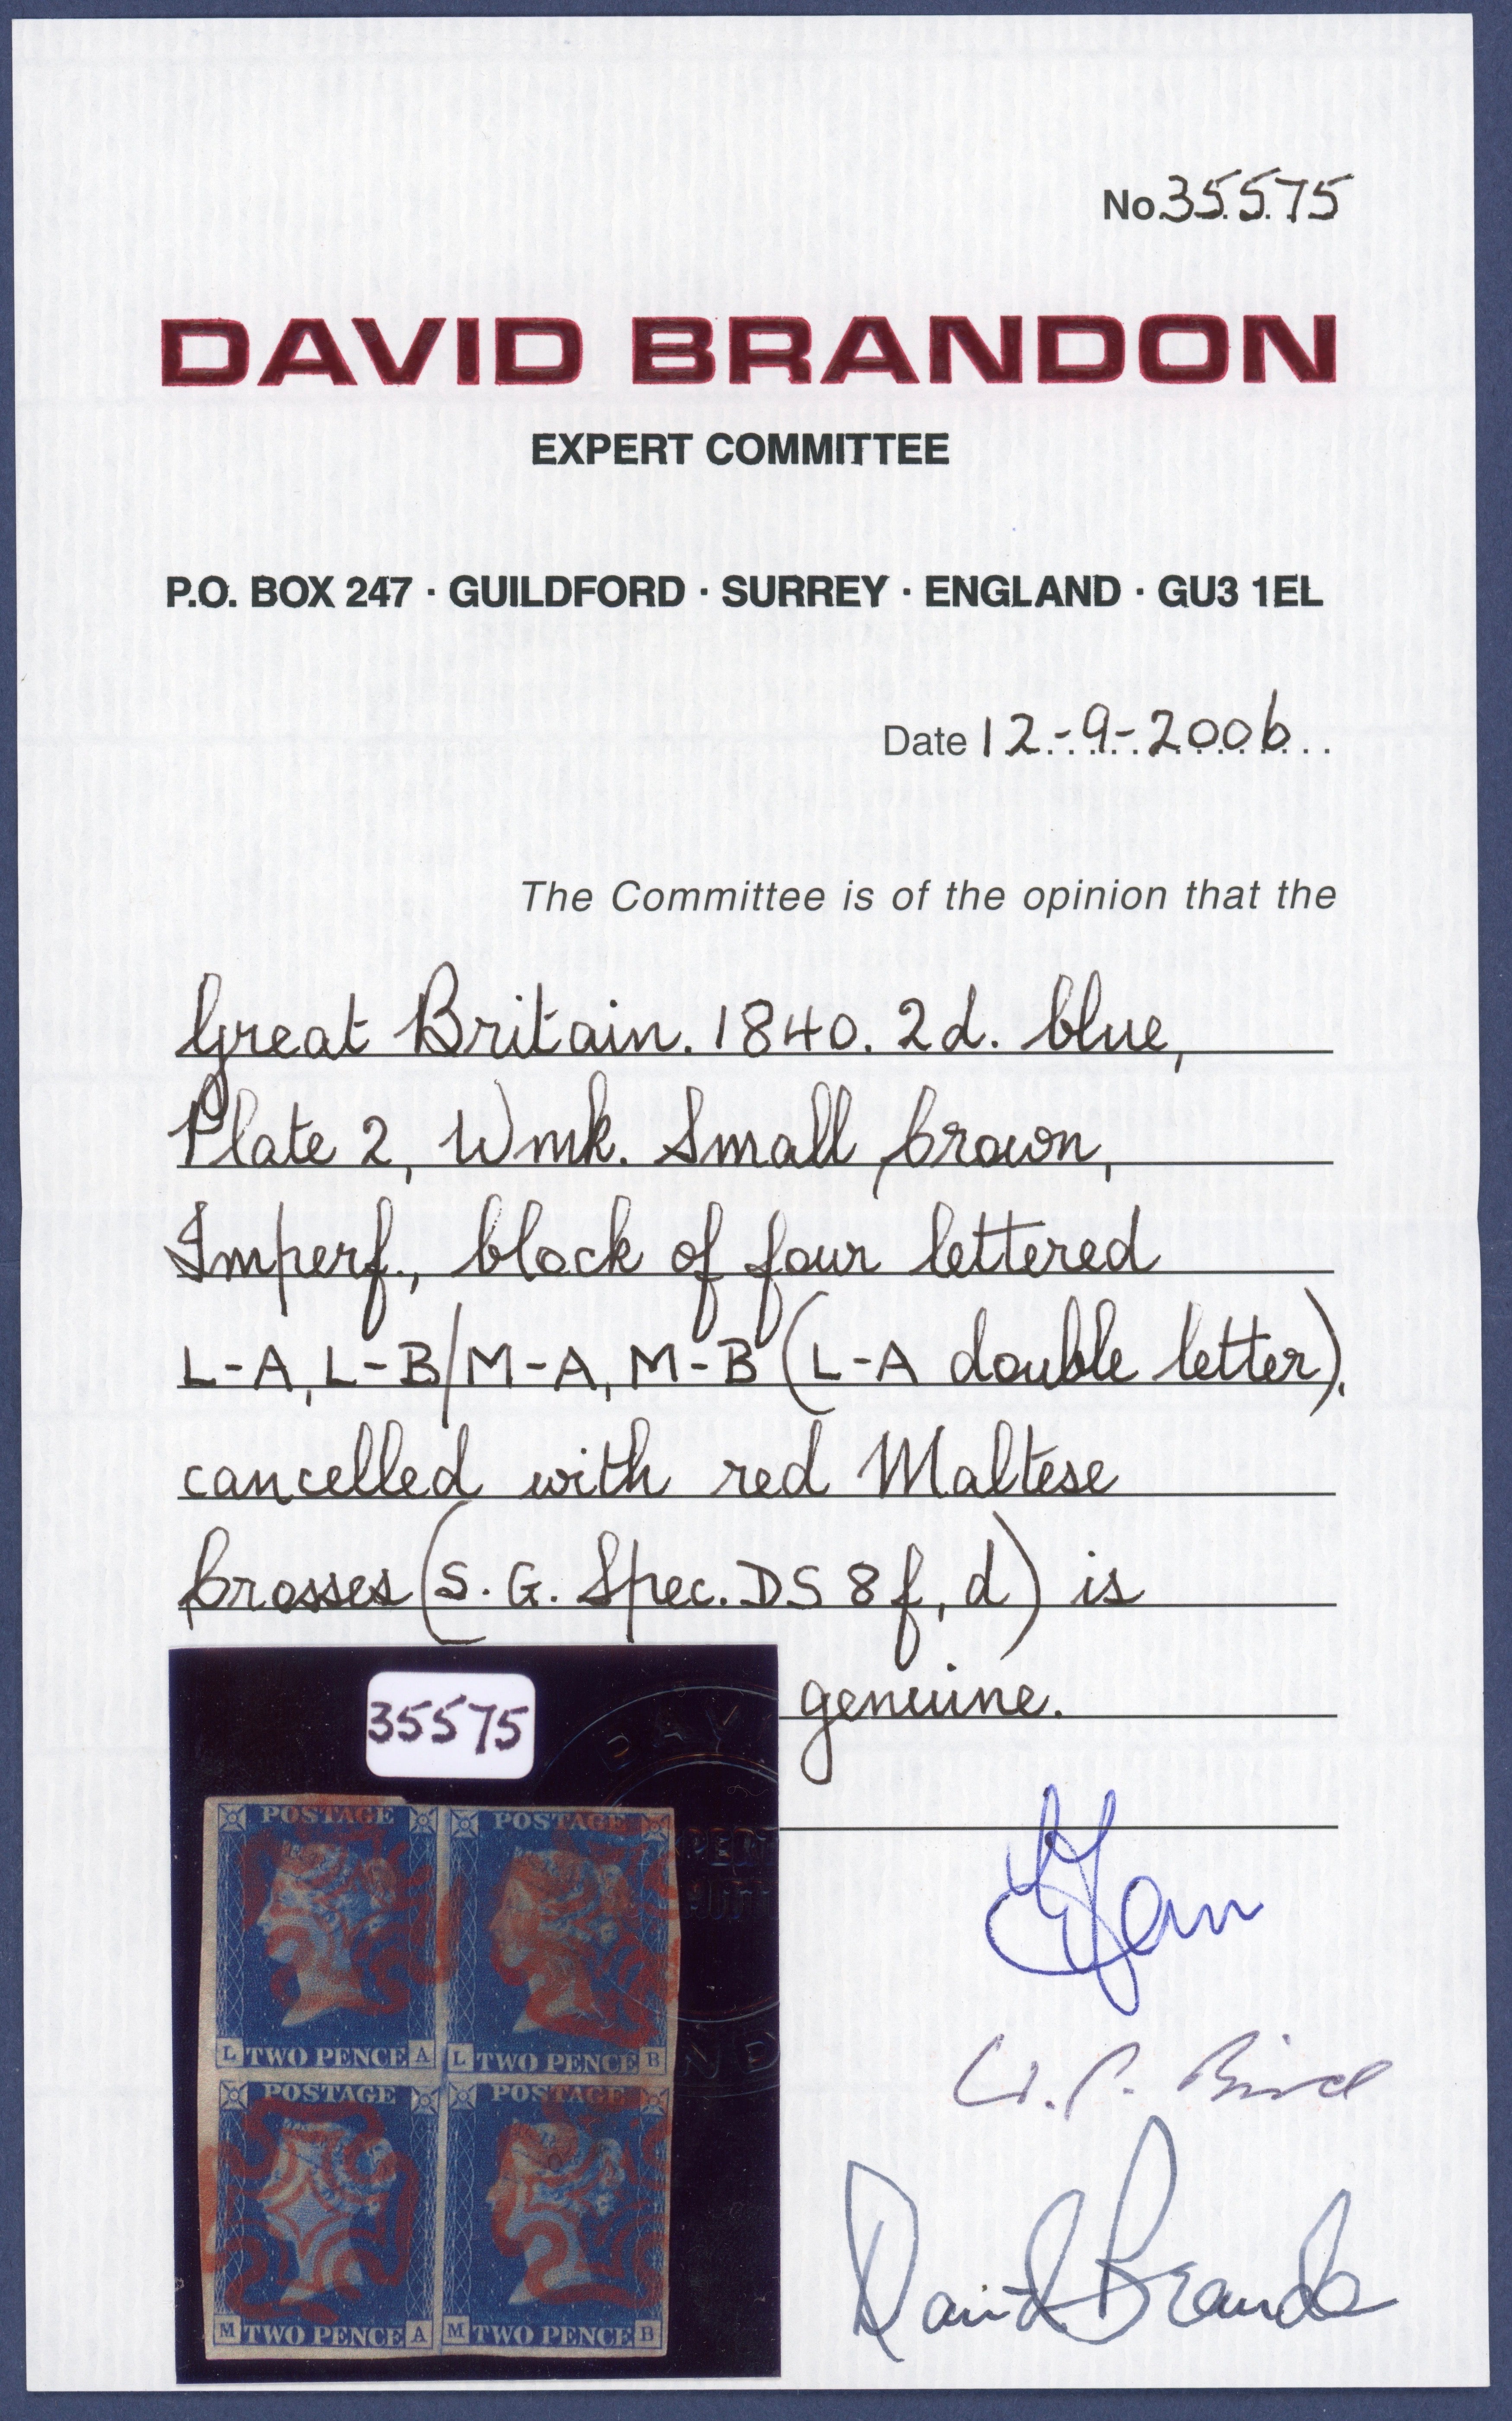 No. 35575
DAVID BRANDON
EXPERT COMMITTEE
P.O. BOX 247 · GUILDFORD · SURREY · ENGLAND · GU3 1EL
Date 12-9-2006
The Committee is of the opinion that the
Great Britain. 1840. 2d. blue,
Plate 2, Wmk. Small Crown,
Imperf., block of four lettered
L-A, L-B/M-A, M-B (L-A double letter),
cancelled with red Maltese
Crosses (S.G. Spec. DS 8f, d) is
genuine.
35575
POSTAGE POSTAGE
L TWO PENCE A L TWO PENCE B
POSTAGE POSTAGE
M TWO PENCE A M TWO PENCE B
Bird
David Brandon